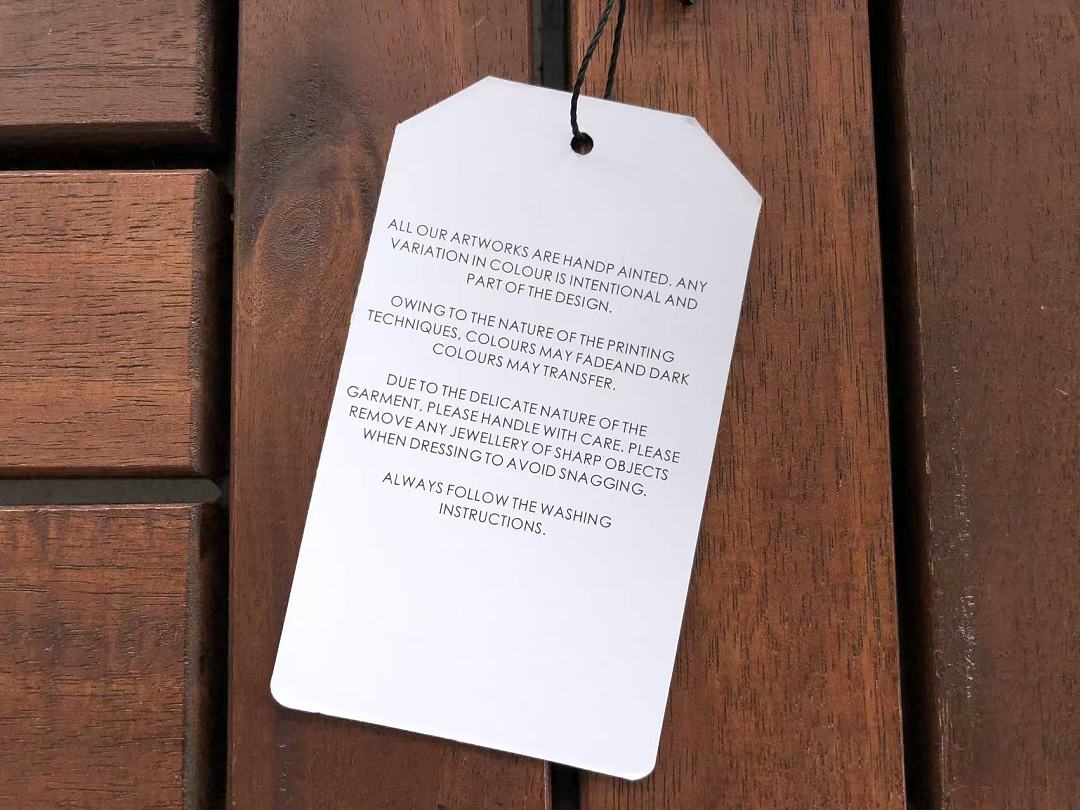 ALL OUR ARTWORKS ARE HANDP AINTED. ANY
VARIATION IN COLOUR IS INTENTIONAL AND
PART OF THE DESIGN.
OWING TO THE NATURE OF THE PRINTING
TECHNIQUES, COLOURS MAY FADEAND DARK
COLOURS MAY TRANSFER.
DUE TO THE DELICATE NATURE OF THE
GARMENT, PLEASE HANDLE WITH CARE. PLEASE
REMOVE ANY JEWELLERY OF SHARP OBJECTS
WHEN DRESSING TO AVOID SNAGGING.
ALWAYS FOLLOW THE WASHING
INSTRUCTIONS.